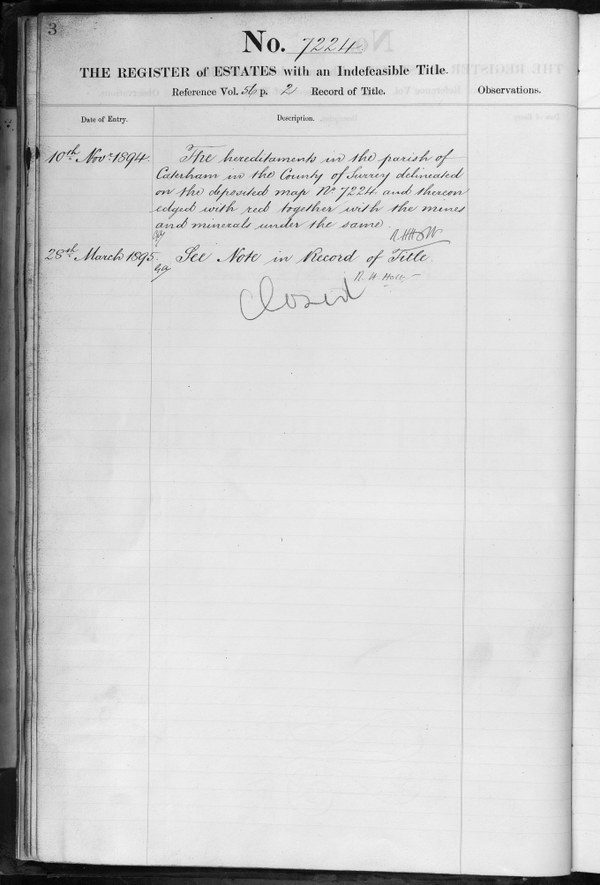 3
No. 7224
THE REGISTER of ESTATES with an Indefeasible Title.
Reference Vol. 56 p. 2 Record of Title.
Observations.
Date of Entry.
Description.
10th Novr 1894.
The hereditaments in the parish of
Caterham in the County of Surrey delineated
on the deposited map No 7224 and thereon
edged with red together with the mines
and minerals under the same.
28th March 1895.
See Note in Record of Title.
R. H. Holt
Closed